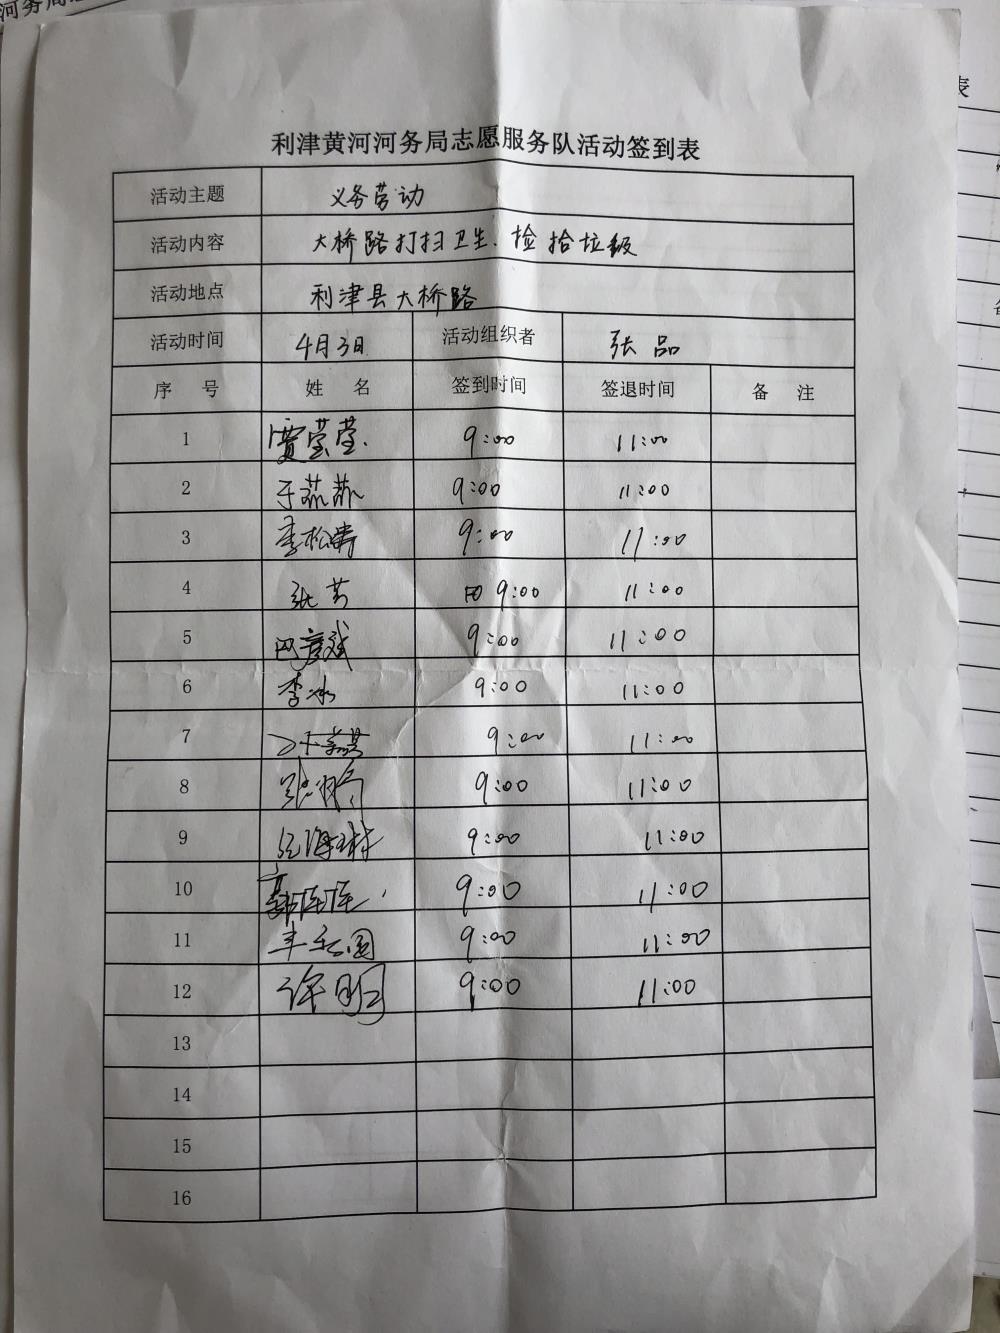 河务局志
表
利津黄河河务局志愿服务队活动签到表
活动主题 义务劳动
活动内容 大桥路打扫卫生、捡拾垃圾
活动地点 利津县大桥路
活动时间 4月3日 活动组织者 张品
序 号 姓 名 签到时间 签退时间 备 注
1 贾莹莹 9:00 11:00
2 于茹茹 9:00 11:00
3 李松涛 9:00 11:00
4 张芳 9:00 11:00
5 9:00 11:00
6 李冰 9:00 11:00
7 9:00 11:00
8 9:00 11:00
9 9:00 11:00
10 9:00 11:00
11 9:00 11:00
12 许明 9:00 11:00
13
14
15
16